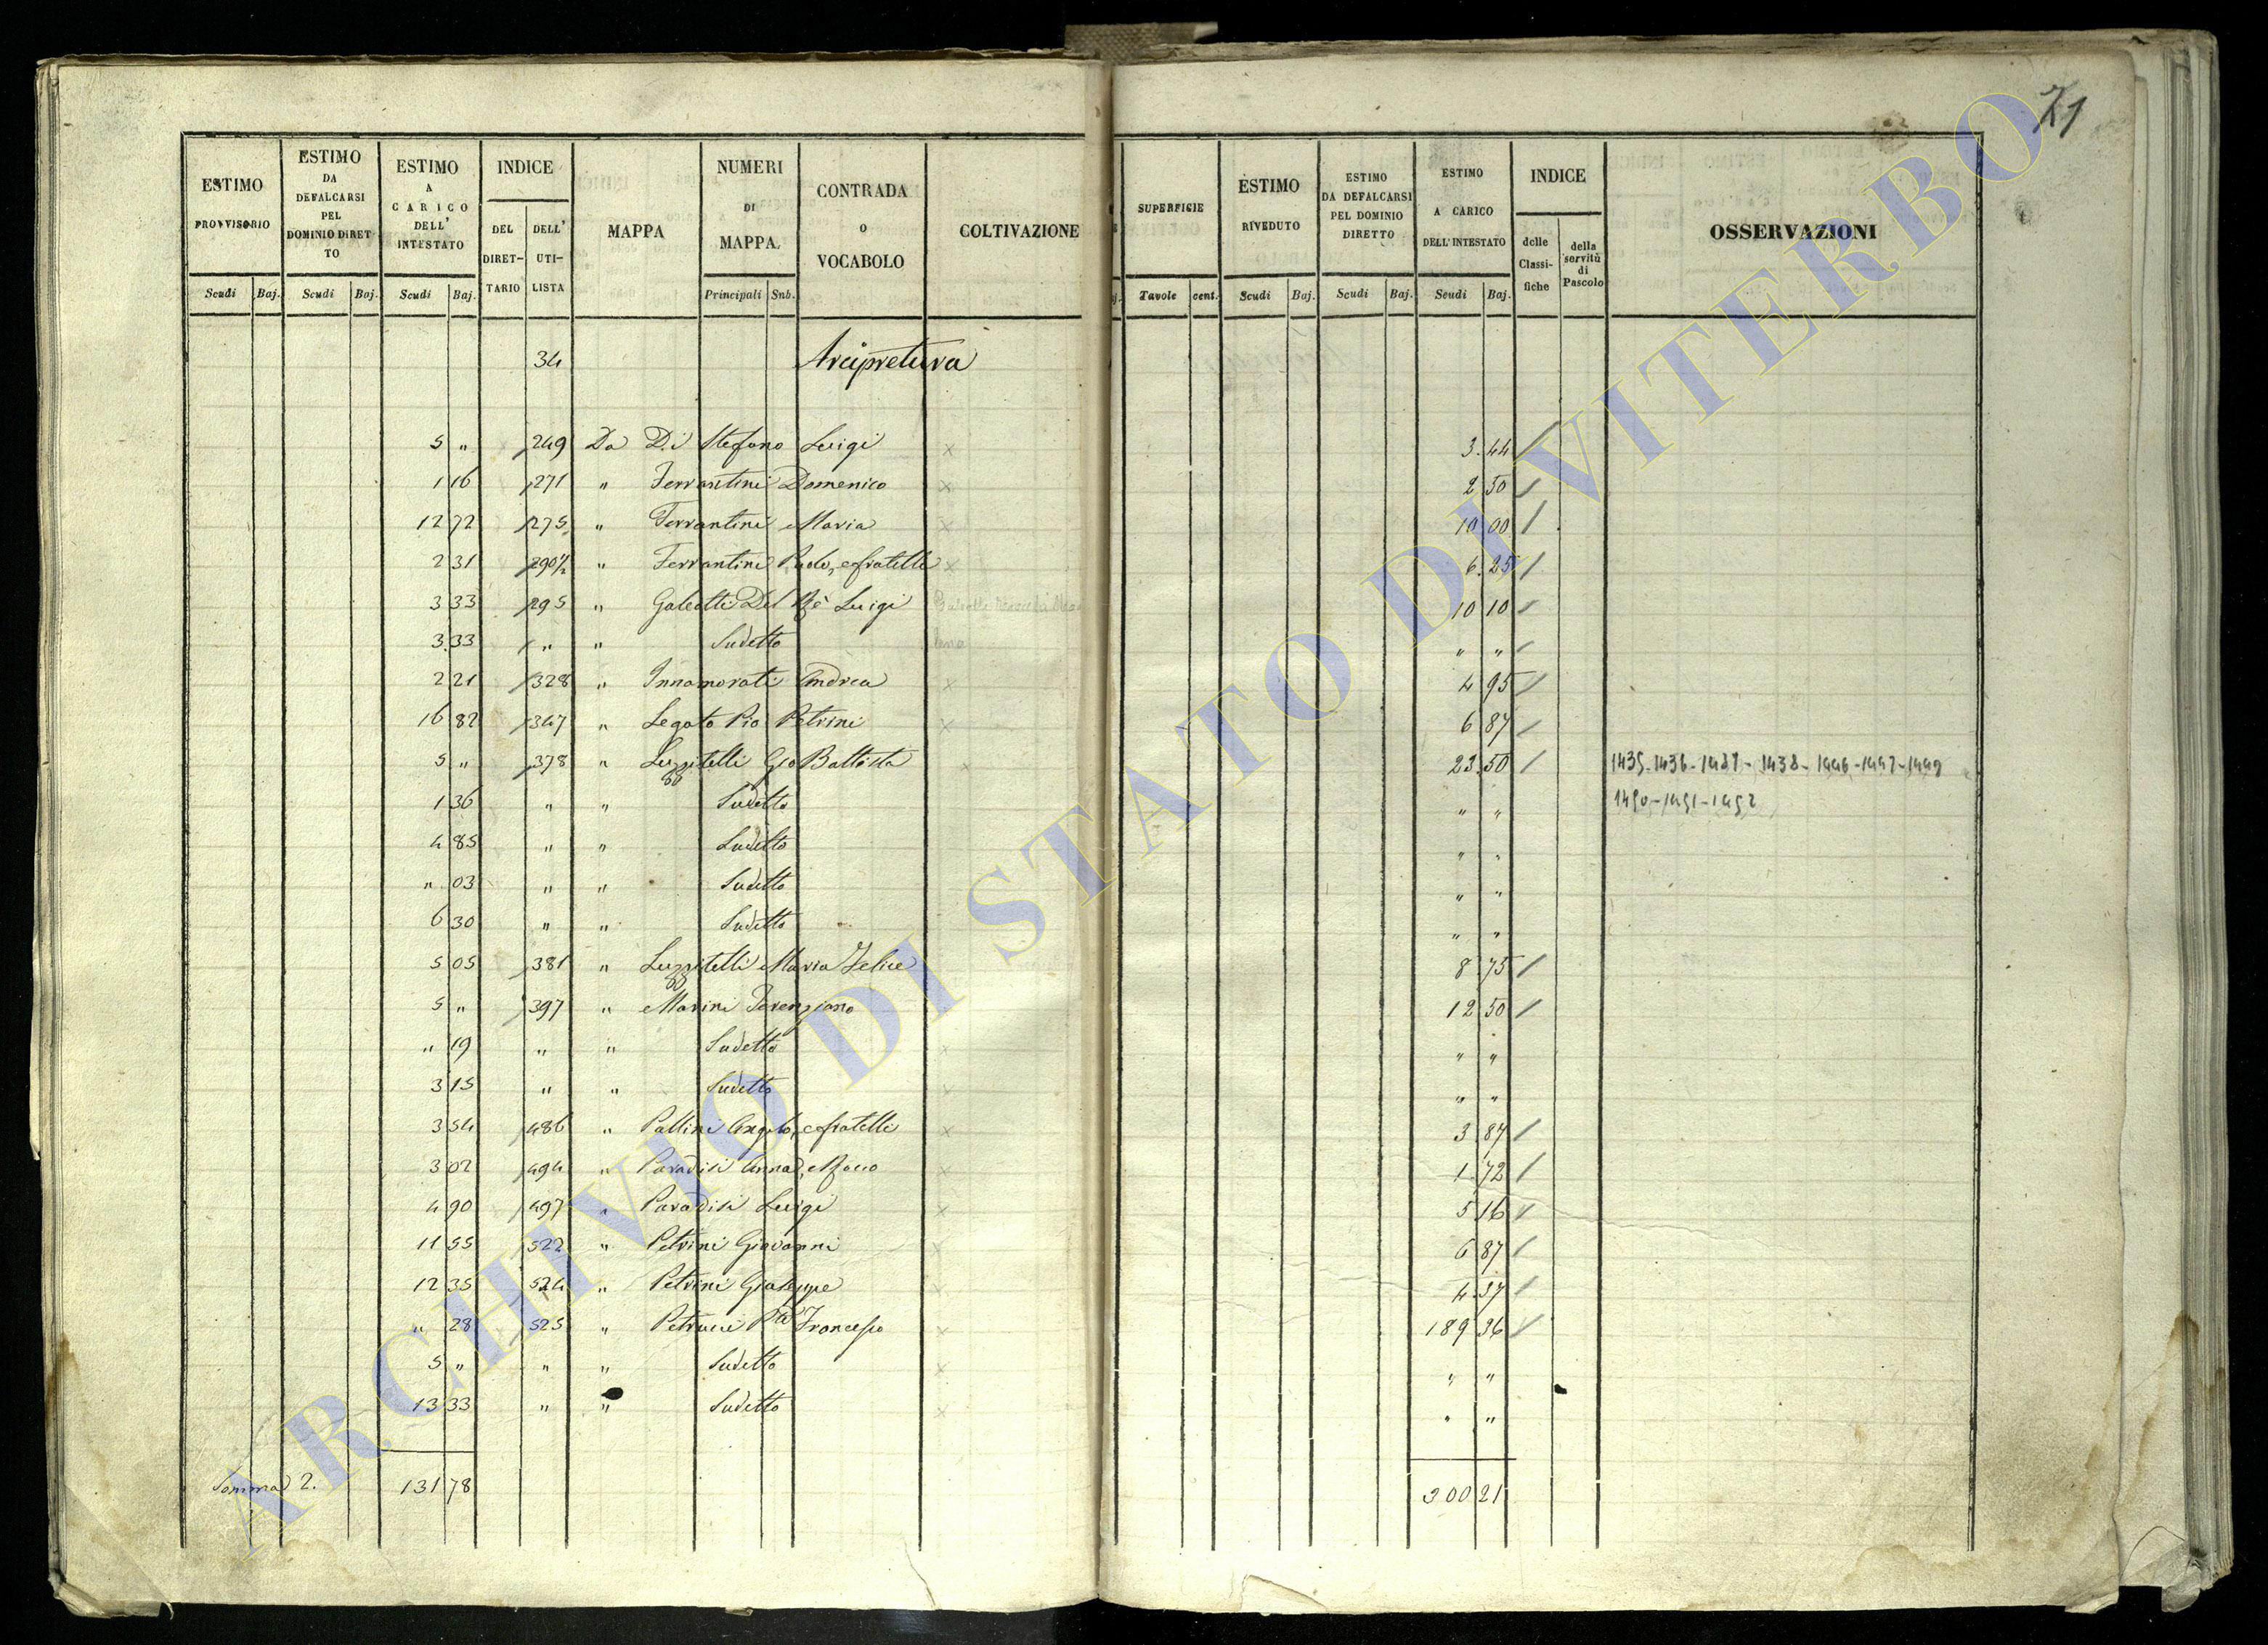 71
ESTIMO PROVVISORIO | ESTIMO DA DEFALCARSI PEL DOMINIO DIRETTO | ESTIMO A CARICO DELL' INTESTATO | INDICE | MAPPA | NUMERI DI MAPPA | CONTRADA O VOCABOLO | COLTIVAZIONE | SUPERFICIE | ESTIMO RIVEDUTO | ESTIMO DA DEFALCARSI PEL DOMINIO DIRETTO | ESTIMO A CARICO DELL' INTESTATO | INDICE | OSSERVAZIONI
DEL DIRET-TARIO | DELL' UTI-LISTA | delle Classi-fiche | della servitù di Pascolo
Scudi | Baj. | Scudi | Baj. | Scudi | Baj. | Principali | Snb. | Tavole | cent. | Scudi | Baj. | Scudi | Baj. | Scudi | Baj.
34 Arcipretura
5 " 249 Da Di Stefano Luigi 3.44
1 16 271 " Ferrantini Domenico 2 50
12 72 275 " Ferrantini Maria 10 00
2 31 290½ " Ferrantini Paolo, e fratelli 6.25
3 33 295 " Galeotti Del Rè Luigi 10 10
3.33 " " Sudetto " "
2 21 328 " Innamorati Andrea 4 95
16 82 347 " Legato Pio Petrini 6 87
5 " 378 " Luzzitelli Gio Battista 23.50 1435-1436-1437-1438-1446-1447-1449
1 36 " " Sudetto " " 1450-1451-1452
4 85 " " Sudetto " "
" 03 " " Sudetto " "
6 30 " " Sudetto " "
5 05 381 " Luzzitelli Maria Felice 8 75
5 " 397 " Marini Terenziano 12 50
" 19 " " Sudetto " "
3 15 " " Sudetto " "
3 54 486 " Pallini Angelo, e fratelli 3 87
3 02 494 " Paradisi Anna, e Rocco 1.72
4 90 497 " Paradisi Luigi 5 16
11 55 522 " Petrini Giovanni 6 87
12 35 524 " Petrini Giuseppe 4.37
" 28 525 " Petrucci Francesco 189 36
5 " " " Sudetto " "
13 33 " " Sudetto " "
Somma 2. 131 78 300 21
ARCHIVIO DI STATO DI VITERBO